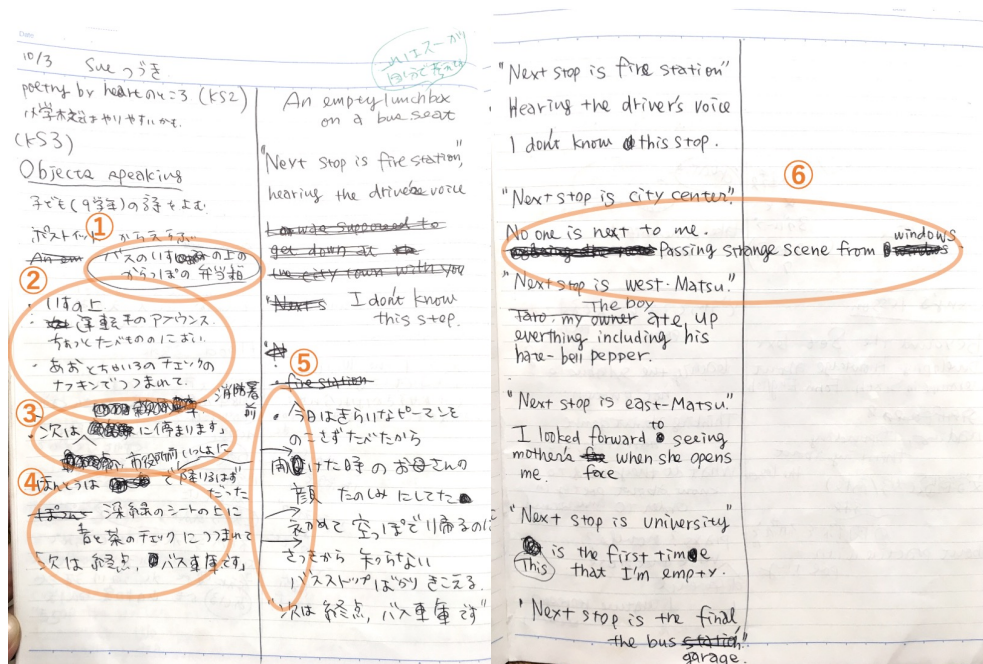 Date
10/3 Sue つづき
これはスーが
自分で考えた
poetry by heartのところ (KS2)
小学校ではやりやすいかも.
(KS3)
Objects speaking
子ども(9学年)の詩をよむ
ポストイット からえらぶ
①
An em
バスのいすの上の
からっぽの弁当箱
②
・いすの上
・運転手のアナウンス.
ちょっとたべもののにおい.
・あおとちゃいろのチェックの
ナフキンでつつまれて.
消防署前
③
・次は に停まります」
市役所前 いっしょに
④
ほんとうは で降りるはず
だった
深緑のシートの上に
青と茶のチェックにつつまれて
「次は終点, バス車庫です」
An empty lunchbox
on a bus seat
"Next stop is fire station",
hearing the driver's voice
I was supposed to
get down at the
the city town with you
"Next s I don't know
this stop.
"N
⑤
・fire station
・今日はきらいなピーマンを
のこさずたべたから
開けた時のお母さんの
顔 たのしみにしてた
初めて空っぽで帰るのに
さっきから 知らない
バスストップばかりきこえる.
"次は終点, バス車庫です"
"Next stop is fire station"
Hearing the driver's voice
I don't know this stop.
⑥
"Next stop is city center."
No one is next to me.
Passing strange scene from windows.
"Next stop is west-Matsu."
The boy
Taro, my owner ate up
everthing including his
hate-bell pepper.
"Next stop is east-Matsu."
I looked forward to seeing
mother's face when she opens
me.
"Next stop is university"
This is the first time
that I'm empty.
"Next stop is the final
the bus station."
garage.